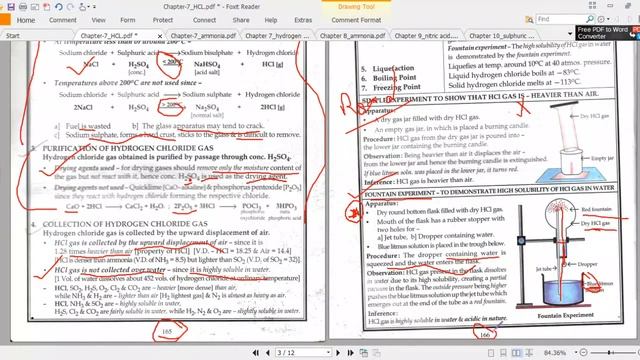 Chapter-7_HCL.pdf * - Foxit Reader
Drawing Tool
Home Comment View Form Protect Share Help Extras Format
Chapter-7_HCL.pdf * Chapter-7_ammonia.pdf Chapter-7_hydrogen Chapter 8_ammonia.pdf Chapter 9_nitric acid. Chapter 10_sulphuric
Free PDF to Word Converter
At temperature less than or around 200°C –
Sodium chloride + Sulphuric acid → Sodium bisulphate + Hydrogen chloride
NaCl + H₂SO₄ < 200°C NaHSO₄ + HCl [g]
[conc.] [acid salt]
Temperatures above 200°C are not used since –
Sodium chloride + Sulphuric acid → Sodium sulphate + Hydrogen chloride
2NaCl + H₂SO₄ > 200°C Na₂SO₄ + 2HCl [g]
[normal salt]
a] Fuel is wasted b] The glass apparatus may tend to crack.
c] Sodium sulphate, forms a hard crust, sticks to the glass & is difficult to remove.
3. PURIFICATION OF HYDROGEN CHLORIDE GAS
Hydrogen chloride gas obtained is purified by passage through conc. H₂SO₄.
Drying agents used – for drying gases should remove only the moisture content of
the gas but not react with it, hence conc. H₂SO₄ is used as the drying agent.
Drying agents not used – Quicklime [CaO - alkaline] & phosphorus pentoxide [P₂O₅]
since they react with hydrogen chloride forming the respective chloride.
CaO + 2HCl → CaCl₂ + H₂O. 2P₂O₅ + 3HCl → POCl₃ + 3HPO₃
4. COLLECTION OF HYDROGEN CHLORIDE GAS
Hydrogen chloride gas is collected by the upward displacement of air.
HCl gas is collected by the upward displacement of air – since it is
1.28 times heavier than air [property of HCl] [V.D. – HCl = 18.25 & Air = 14.4]
[HCl is denser than ammonia (V.D. – NH₃ = 8.5) but lighter than SO₂ (V.D. – SO₂ = 32)]
HCl gas is not collected over water – since it is highly soluble in water.
[1 Vol. of water dissolves about 452 vols. of hydrogen chloride at ordinary temperature]
HCl, SO₂, H₂S, O₂, Cl₂ & CO₂ – are heavier [more dense] than air,
while NH₃ & H₂ – are lighter than air [H₂ lightest gas] & N₂ is almost as heavy as air.
HCl, SO₂ & NH₃ – are highly soluble in water.
H₂S, Cl₂ & CO₂ are fairly soluble in water, while H₂, N₂ & O₂ – are slightly soluble in water.
165
5. Liquefaction
6. Boiling Point
7. Freezing Point
Fountain experiment – The high solubility of HCl gas in water
is demonstrated by the fountain experiment.
Liquefies at temp. around 10°C at 40 atmos. pressure.
Liquid hydrogen chloride boils at – 83°C.
Solid hydrogen chloride melts at – 113°C.
SIMPLE EXPERIMENT TO SHOW THAT HCl GAS IS – HEAVIER THAN AIR.
Apparatus:
A dry gas jar filled with dry HCl gas.
An empty gas jar, in which is placed a burning candle.
Procedure: HCl gas from the dry gas jar is poured into –
the lower jar containing the burning candle.
Observation: Being heavier than air it displaces the air –
from the lower jar and hence the burning candle is extinguished.
If blue litmus soln. was placed in the lower jar, it turns red.
Inference: HCl gas is heavier than air.
Dry HCl gas
Empty jar
FOUNTAIN EXPERIMENT – TO DEMONSTRATE HIGH SOLUBILITY OF HCl GAS IN WATER
Apparatus:
• Dry round bottom flask filled with dry HCl gas.
• Mouth of the flask has a rubber stopper with
two holes for –
a] Jet tube, b] Dropper containing water.
• Blue litmus solution is placed in the trough below.
Procedure: The dropper containing water is
squeezed and the water enters the flask.
Observation: HCl gas present in the flask dissolves
in water due to its high solubility, creating a partial
vacuum in the flask. The outside pressure being higher
pushes the blue litmus solution up the jet tube which
emerges out at the end of the tube as a red fountain.
Inference:
HCl gas is highly soluble in water & acidic in nature.
Red fountain
Dry HCl gas
Dropper
Jet tube
Blue litmus
Fountain Experiment
166
3 / 12
84.36%